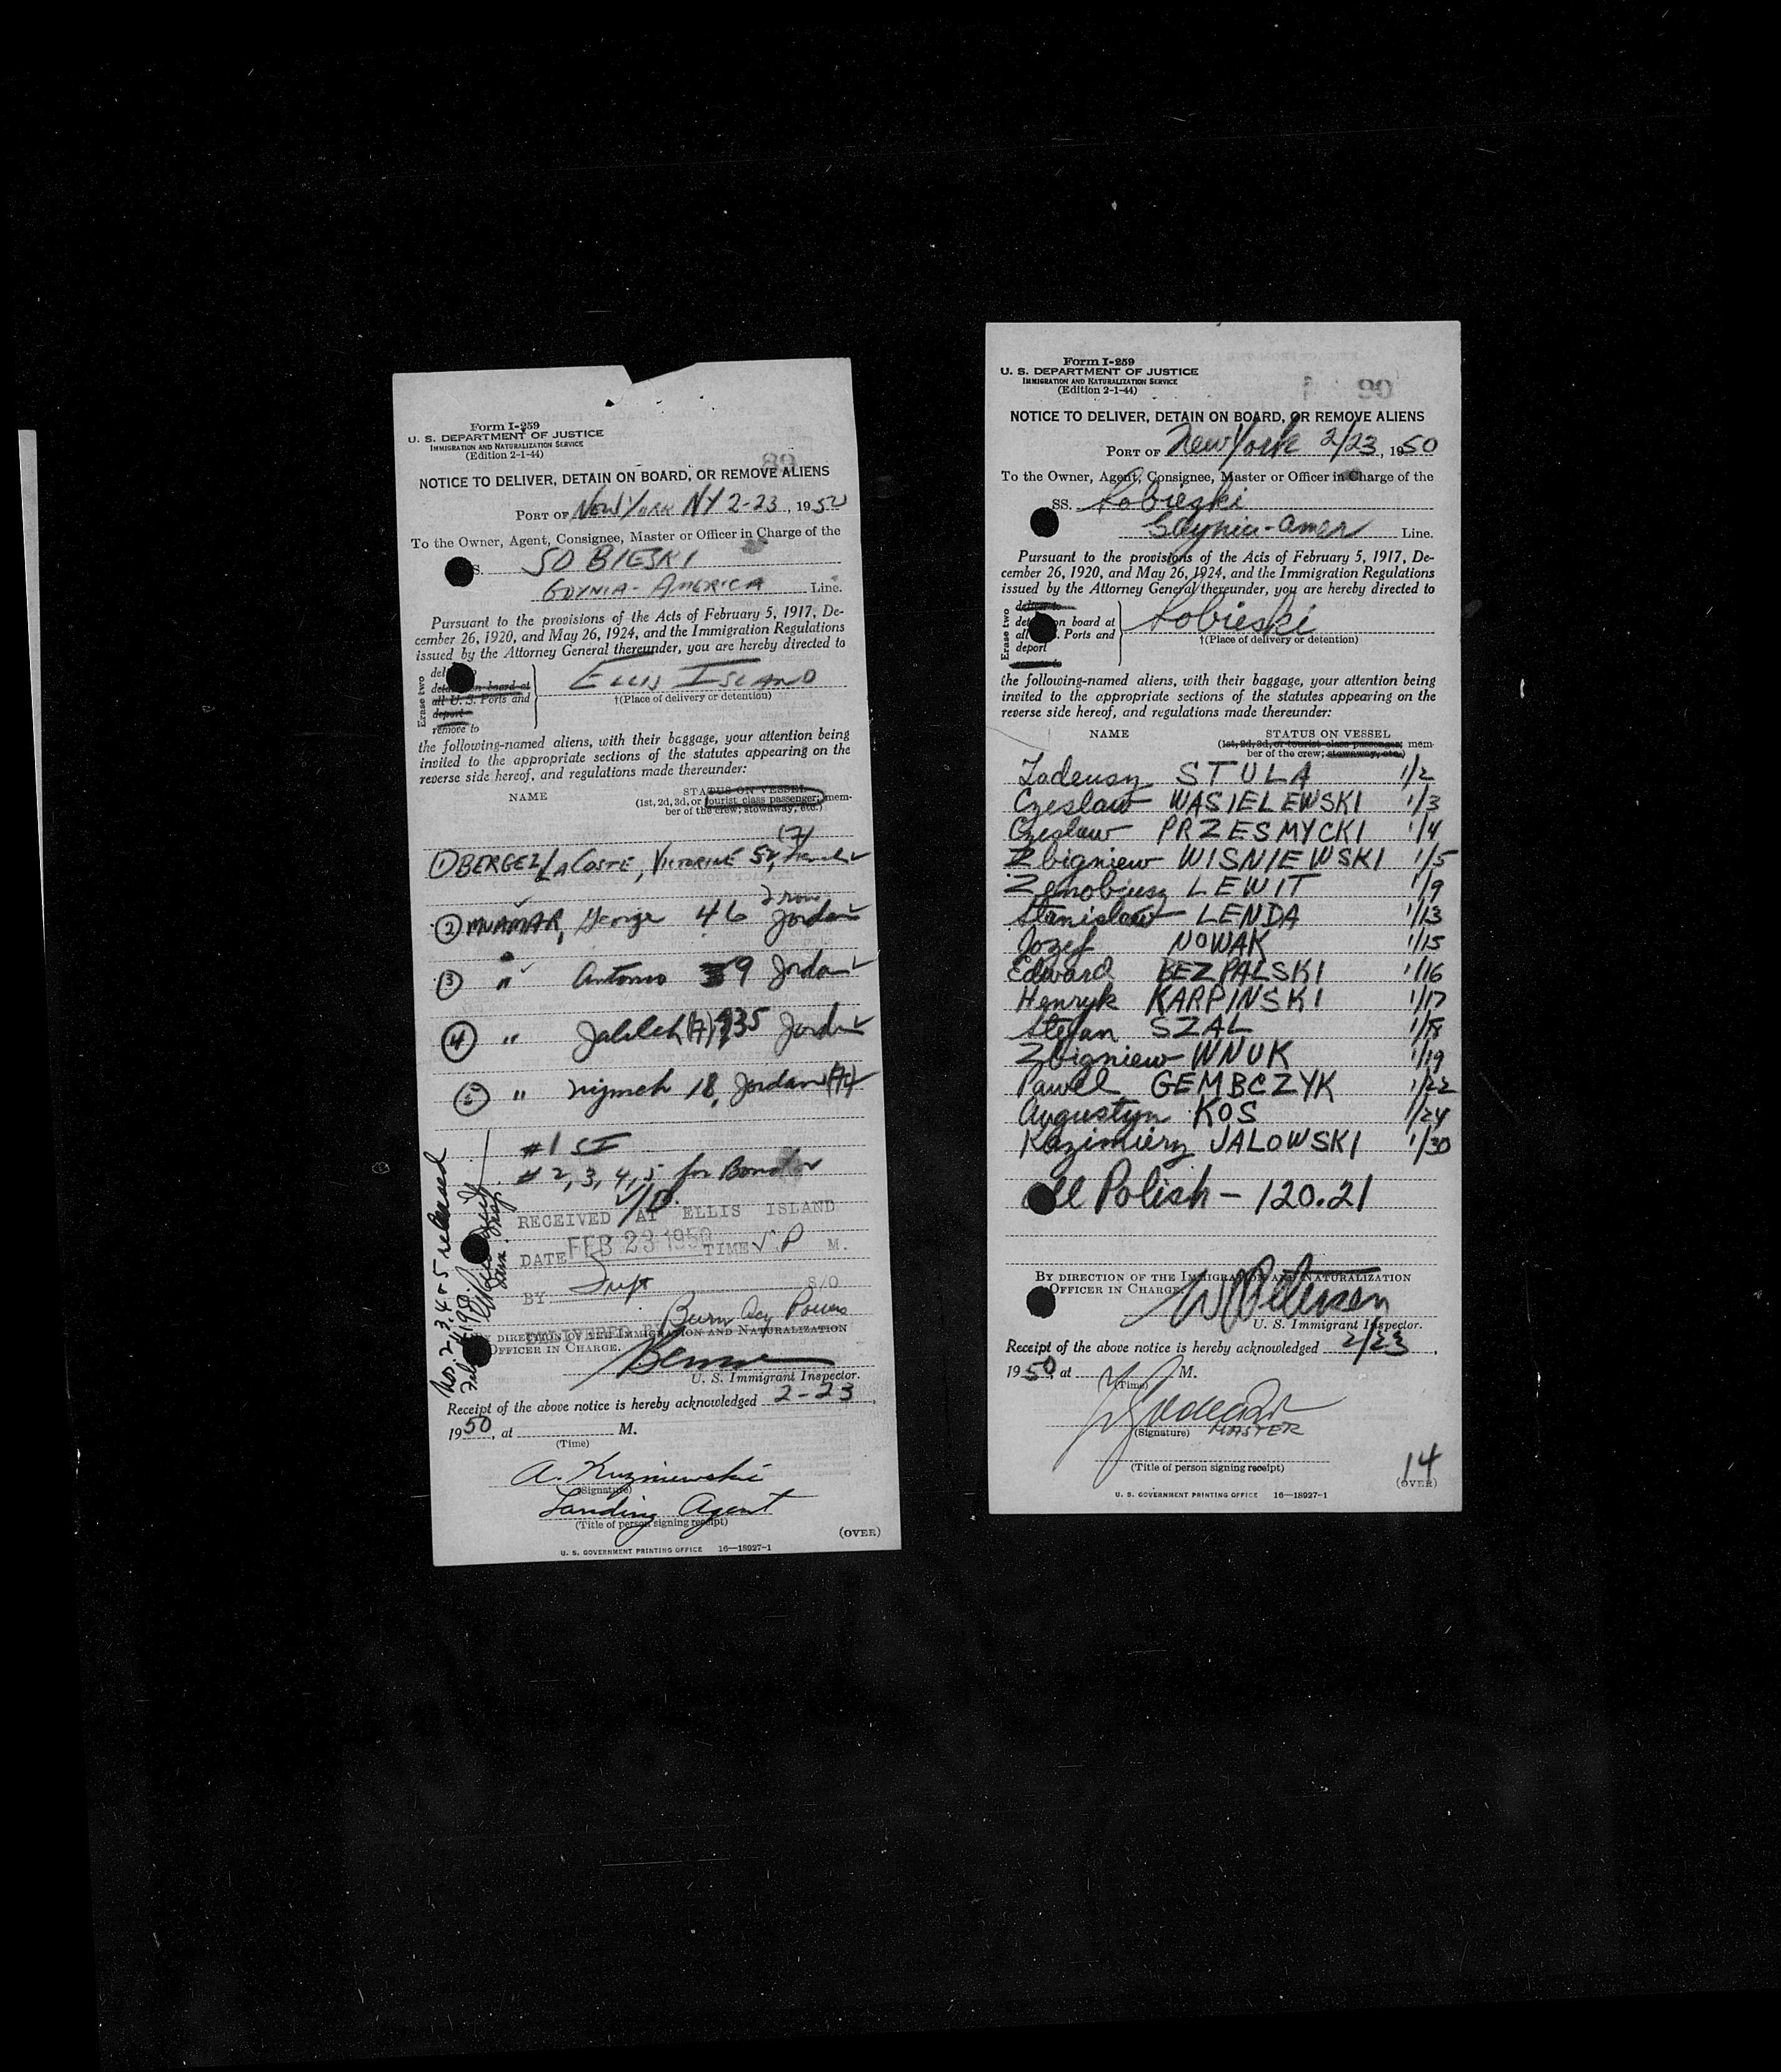 Form I-259
U. S. DEPARTMENT OF JUSTICE
IMMIGRATION AND NATURALIZATION SERVICE
(Edition 2-1-44)
89
NOTICE TO DELIVER, DETAIN ON BOARD, OR REMOVE ALIENS
PORT OF NEW YORK NY 2-23, 1950
To the Owner, Agent, Consignee, Master or Officer in Charge of the
S. SOBIESKI
GDYNIA-AMERICA Line.
Pursuant to the provisions of the Acts of February 5, 1917, De-
cember 26, 1920, and May 26, 1924, and the Immigration Regulations
issued by the Attorney General thereunder, you are hereby directed to
Erase two
del
deta n board at
all U. S. Ports and
deport
remove to
ELLIS ISLAND
†(Place of delivery or detention)
the following-named aliens, with their baggage, your attention being
invited to the appropriate sections of the statutes appearing on the
reverse side hereof, and regulations made thereunder:
NAME STATUS ON VESSEL
(1st, 2d, 3d, or tourist class passenger; mem-
ber of the crew; stowaway, etc.)
① BERGEZ/LACOSTE, VICTORINE 52,
② George 46 Jordan
③ " 39 Jordan
④ " Jalileh 35 Jordan
⑤ " 18, Jordan
#1 SI
# 2, 3, 4, 5 for Bond
RECEIVED AT ELLIS ISLAND
DATE FEB 23 1950 TIME P M.
BY S/O
Nos. 2-3-4+5 released
BY DIRECTION OF THE IMMIGRATION AND NATURALIZATION
OFFICER IN CHARGE.
U. S. Immigrant Inspector.
Receipt of the above notice is hereby acknowledged 2-23,
1950, at M.
(Time)
A. Kuzniewski
(Signature)
Landing Agent
(Title of person signing receipt)
(OVER)
U. S. GOVERNMENT PRINTING OFFICE 16—18927-1
Form I-259
U. S. DEPARTMENT OF JUSTICE
IMMIGRATION AND NATURALIZATION SERVICE
(Edition 2-1-44)
90
NOTICE TO DELIVER, DETAIN ON BOARD, OR REMOVE ALIENS
PORT OF New York 2/23, 1950
To the Owner, Agent, Consignee, Master or Officer in Charge of the
SS. Sobieski
Gdynia-Amer Line.
Pursuant to the provisions of the Acts of February 5, 1917, De-
cember 26, 1920, and May 26, 1924, and the Immigration Regulations
issued by the Attorney General thereunder, you are hereby directed to
Erase two
deliver to
det on board at
all . Ports and
deport
remove to
Sobieski
†(Place of delivery or detention)
the following-named aliens, with their baggage, your attention being
invited to the appropriate sections of the statutes appearing on the
reverse side hereof, and regulations made thereunder:
NAME STATUS ON VESSEL
(1st, 2d, 3d, or tourist class passenger; mem-
ber of the crew; stowaway, etc.)
Tadeusz STULA 1/2
Czeslaw WASIELEWSKI 1/3
Czeslaw PRZESMYCKI 1/4
Zbigniew WISNIEWSKI 1/5
Zenobiusz LEWIT 1/9
Stanislaw LENDA 1/13
Jozef NOWAK 1/15
Edward BEZPALSKI 1/16
Henryk KARPINSKI 1/17
Stefan SZAL 1/18
Zbigniew WNUK 1/19
Pawel GEMBCZYK 1/22
Augustyn KOS 1/24
Kazimierz JALOWSKI 1/30
All Polish - 120.21
BY DIRECTION OF THE IMMIGRATION AND NATURALIZATION
OFFICER IN CHARGE.
U. S. Immigrant Inspector.
Receipt of the above notice is hereby acknowledged 2/23,
1950, at M.
(Time)
(Signature) MASTER
(Title of person signing receipt)
14
(OVER)
U. S. GOVERNMENT PRINTING OFFICE 16—18927-1